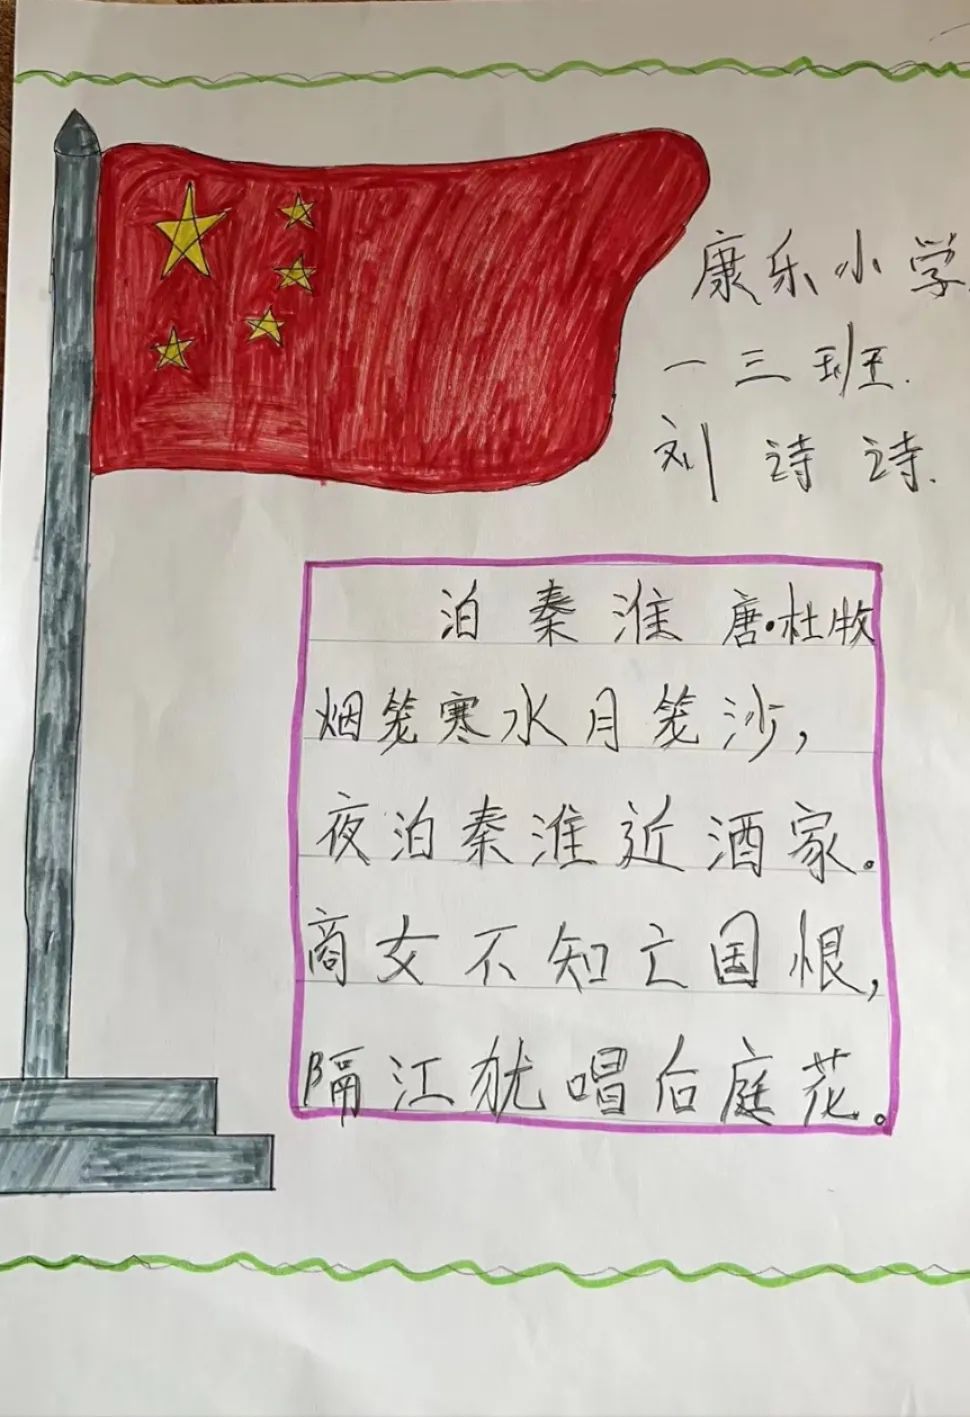 康乐小学
一三班.
刘诗诗.
泊秦淮 唐·杜牧
烟笼寒水月笼沙,
夜泊秦淮近酒家.
商女不知亡国恨,
隔江犹唱后庭花。